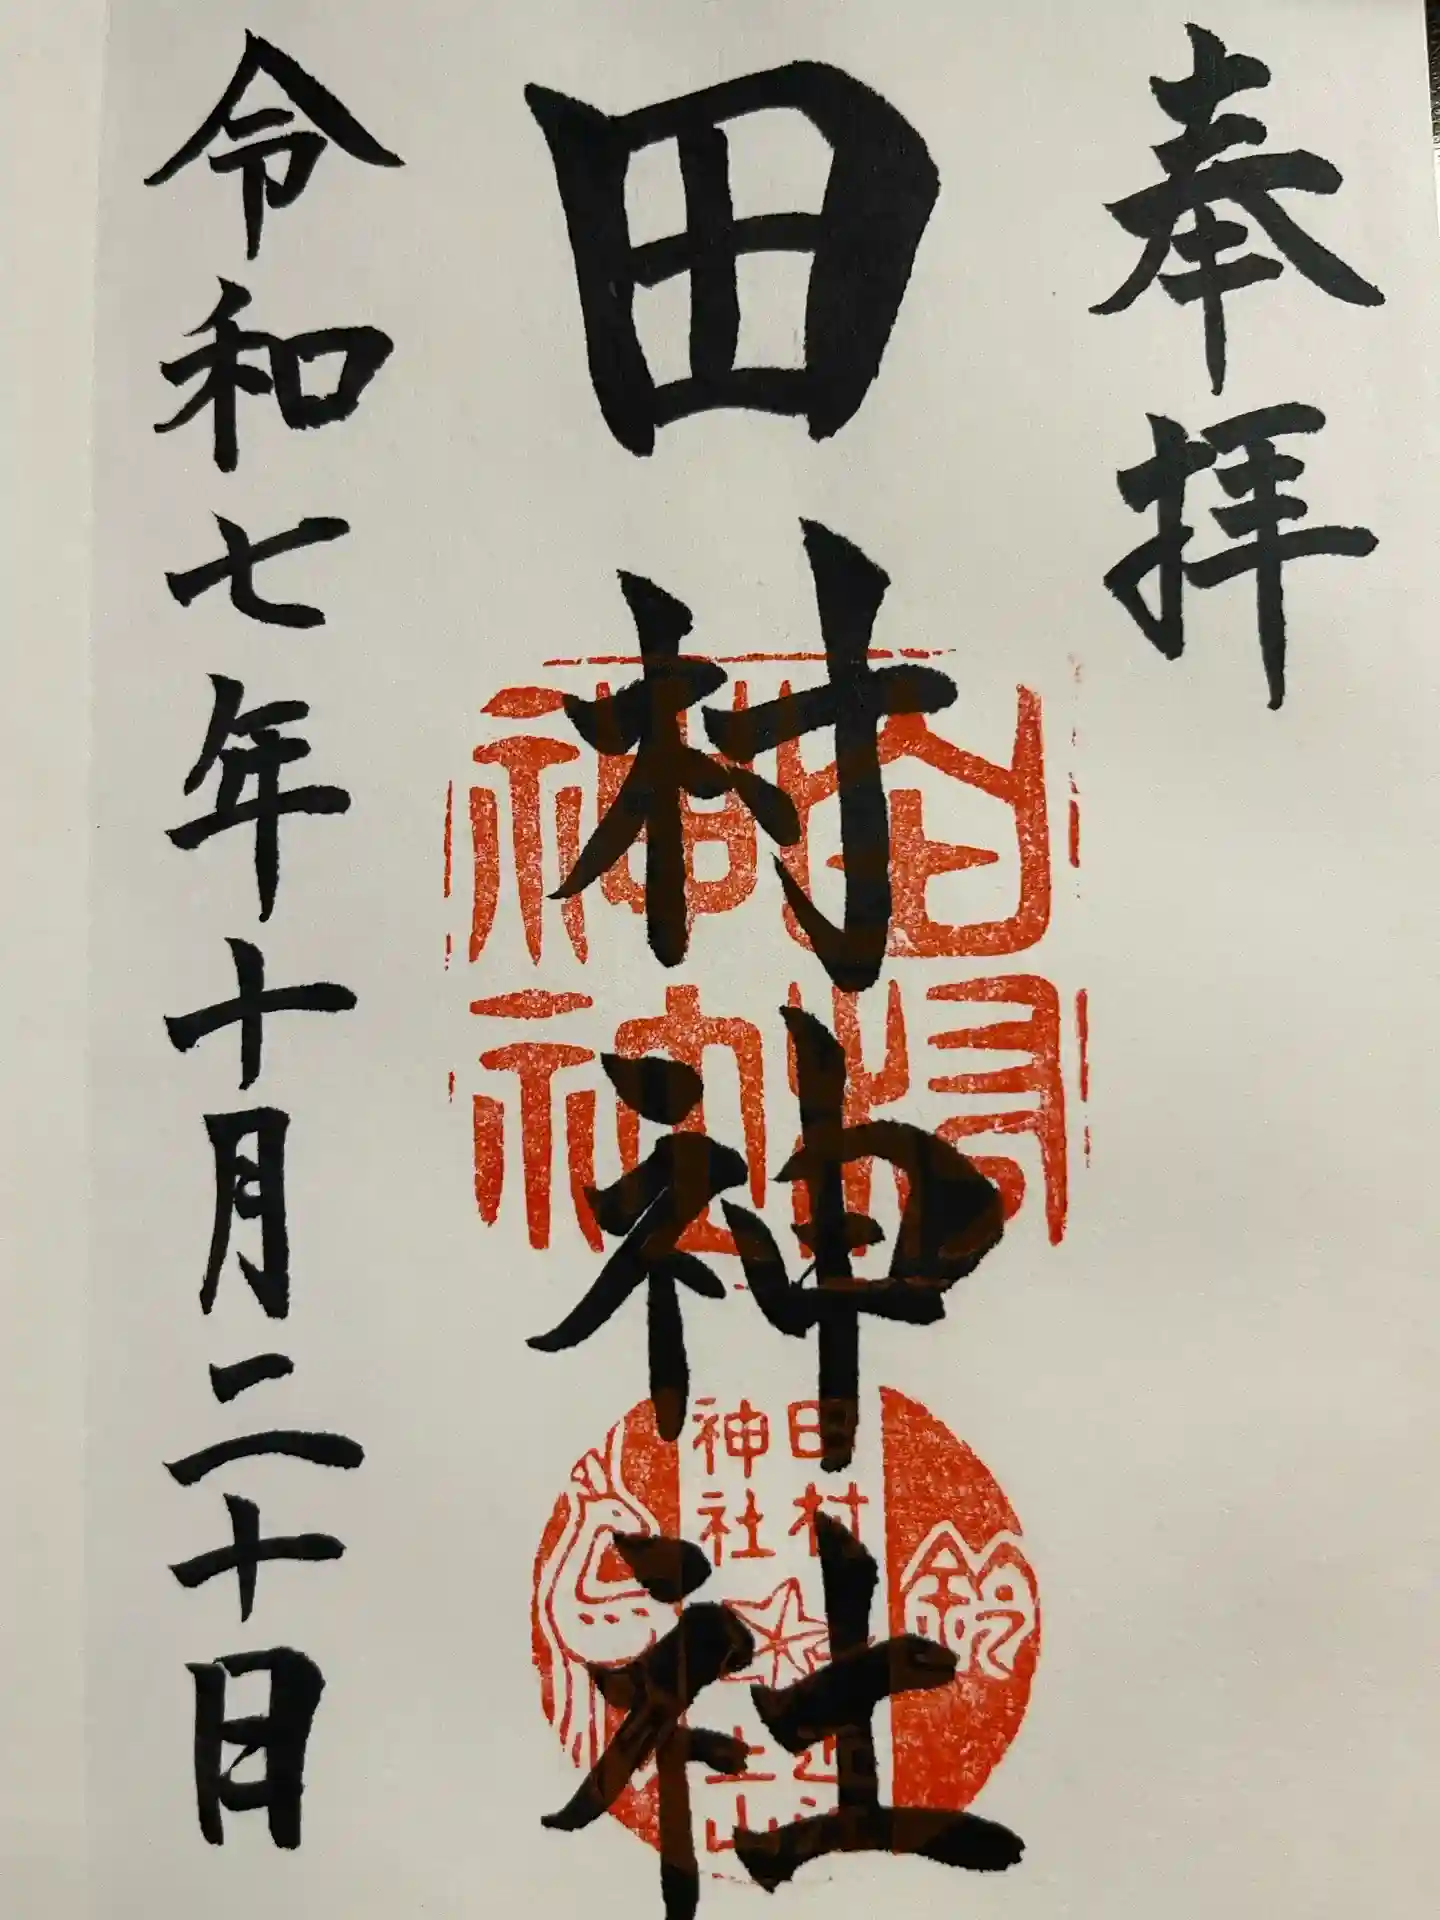 奉拝
田村神社
令和七年十月二十日
田村
神社
田村
神社
近江
土山